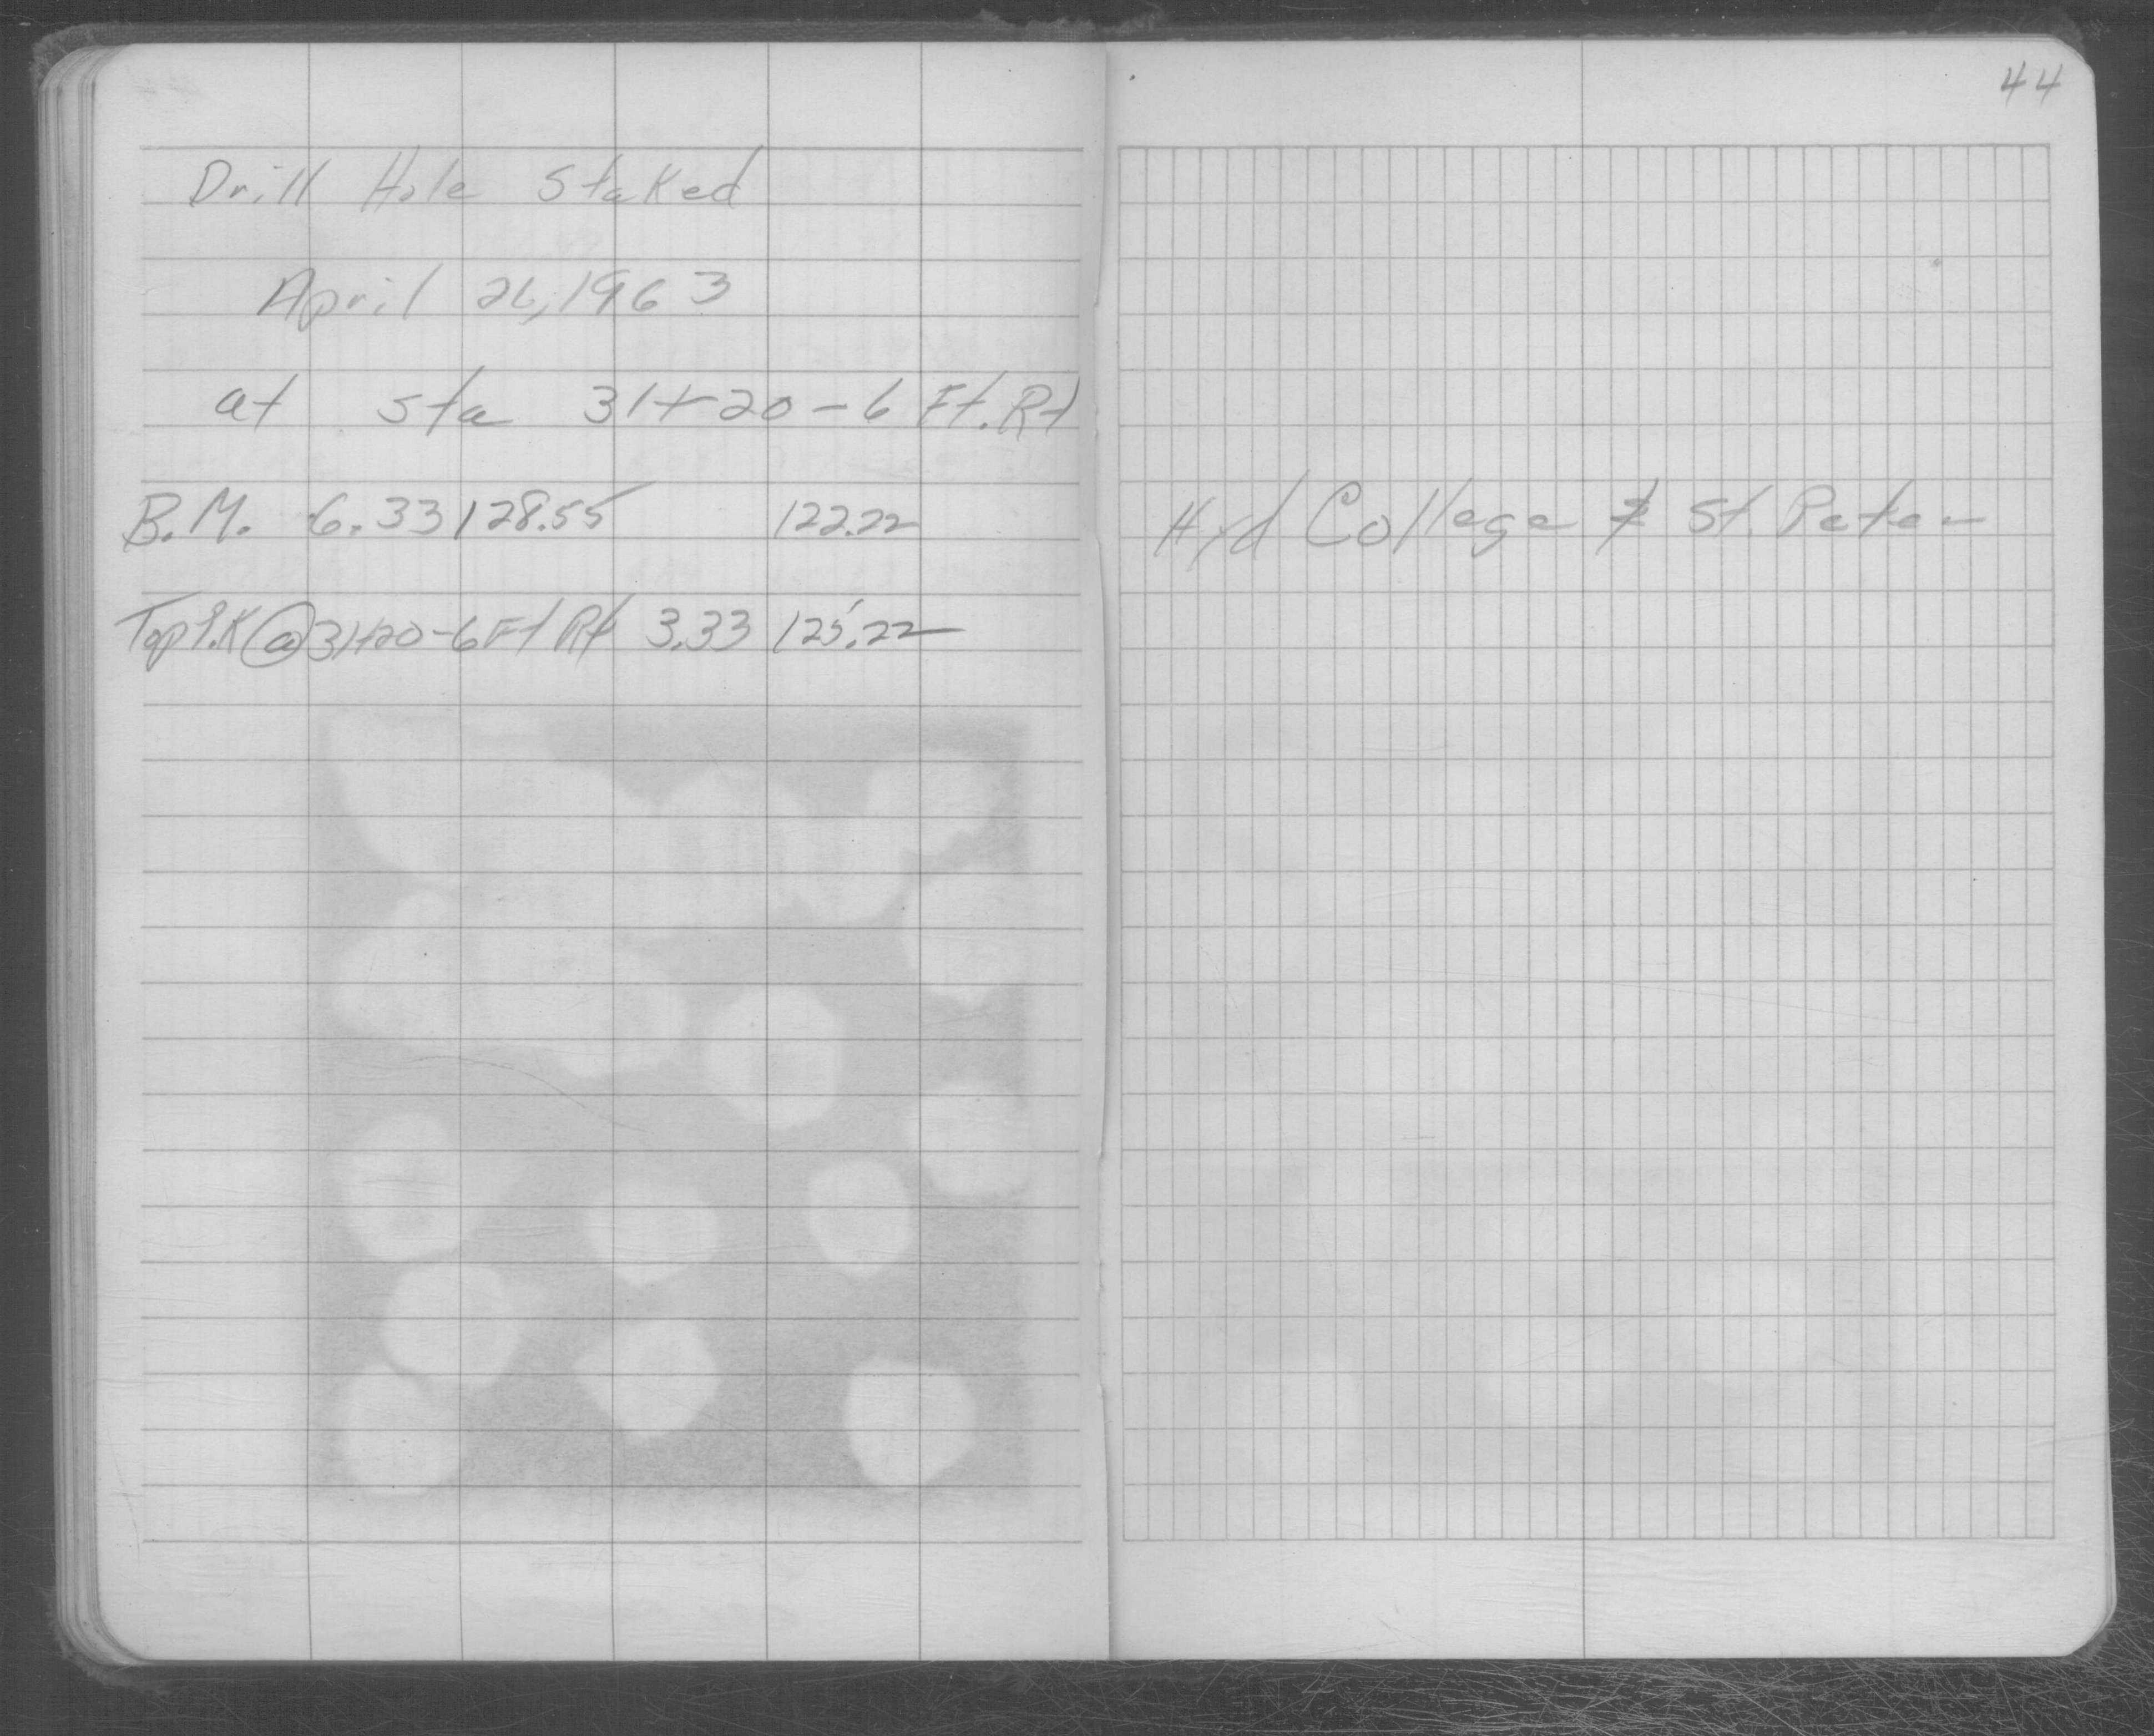 44
Drill Hole Staked
April 26, 1963
at sta 31+20 - 6 Ft. Rt
B.M. 6.33 128.55 122.22 Hyd College & St. Peter
Top P.K @ 31+20 - 6 Ft Rt 3.33 125.22